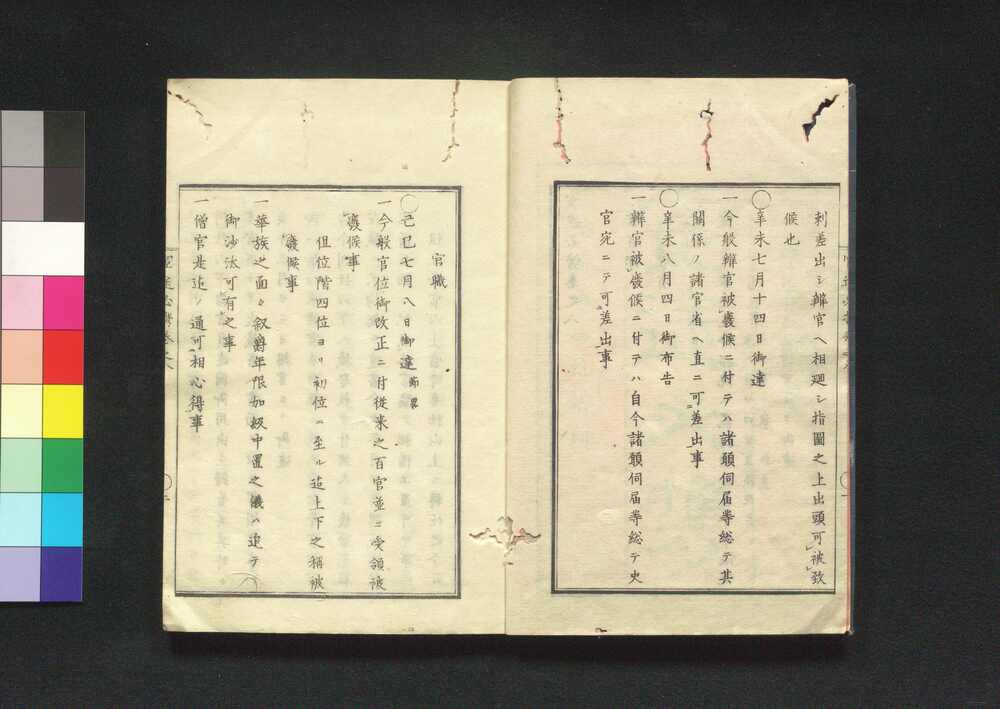 刺差出シ辨官ヘ相廻シ指圖之上出頭可被致
候也
◯辛未七月十四日御達
一今般辨官被廢候ニ付テハ諸願伺届等総テ其
關係ノ諸官省ヘ直ニ可差出事
◯辛未八月四日御布告
一辨官被廢候ニ付テハ自今諸願伺届等総テ史
官宛ニテ可差出事
官職
◯己巳七月八日御達 節畧
一今般官位御改正ニ付従来之百官並ニ受領被
廢候事
但位階四位ヨリ初位ニ至ル迄上下之称被
廢候事
一華族之面々叙爵年限加級中置之儀ハ追テ
御沙汰可有之事
一僧官是迄ノ通可相心得事